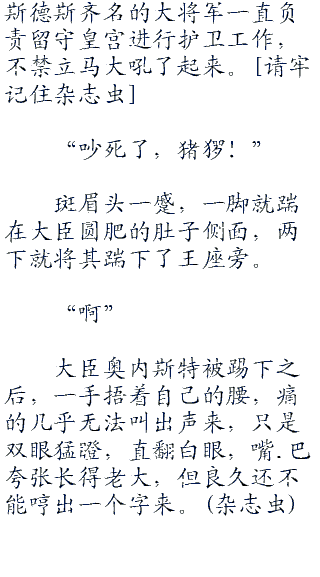 斯德斯齐名的大将军一直负
责留守皇宫进行护卫工作，
不禁立马大吼了起来。[请牢
记住杂志虫]
“吵死了，猪猡！”
斑眉头一蹙，一脚就踹
在大臣圆肥的肚子侧面，两
下就将其踹下了王座旁。
“啊”
大臣奥内斯特被踢下之
后，一手捂着自己的腰，痛
的几乎无法叫出声来，只是
双眼猛蹬，直翻白眼，嘴.巴
夸张长得老大，但良久还不
能哼出一个字来。(杂志虫)